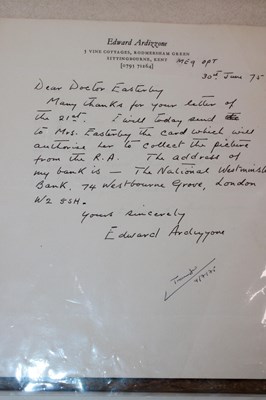 Edward Ardizzone
5 VINE COTTAGES, RODMERSHAM GREEN
SITTINGBOURNE, KENT
[0795 71264]
30th June 75
Dear Doctor Easterby
Many thanks for your letter of
the 21st. I will today send
to Mrs. Easterby the card which will
authorise her to collect the picture
from the R.A. The address of
my bank is — The National Westminster
Bank, 74 Westbourne Grove, London
W2 5SH.
Yours sincerely
Edward Ardizzone